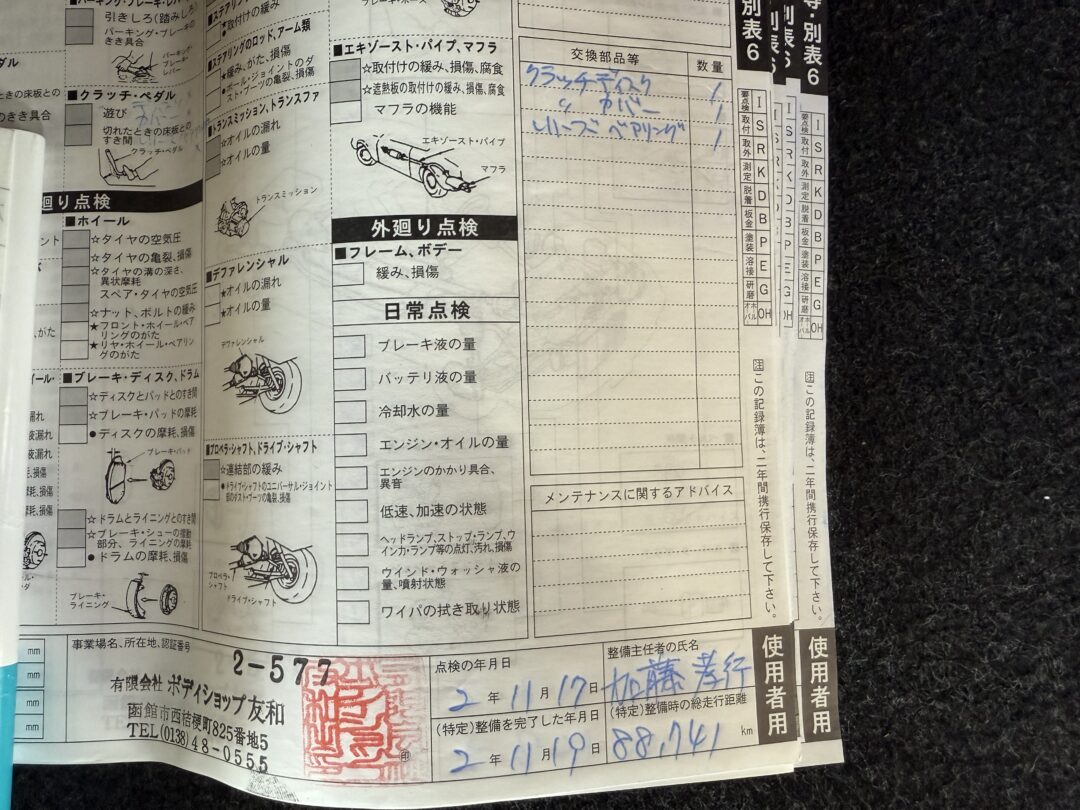 パーキング・ブレーキ・レバー
引きしろ(踏みしろ)
パーキング・ブレーキの
きき具合
パーキング・
ブレーキ・
レバー
ダル
ときの床板との
のきき具合
■クラッチ・ペダル
遊び
切れたときの床板との
すき間
クラッチ・ペダル
廻り点検
■ホイール
☆タイヤの空気圧
☆タイヤの亀裂、損傷
☆タイヤの溝の深さ、
異状摩耗
スペア・タイヤの空気圧
☆ナット、ボルトの緩み
★フロント・ホイール・ベア
リングのがた
★リヤ・ホイール・ベアリン
グのがた
■ブレーキ・ディスク、ドラム
☆ディスクとパッドとのすき間
☆ブレーキ・パッドの摩耗
●ディスクの摩耗、損傷
ブレーキ・パッド
☆ドラムとライニングとのすき間
☆ブレーキ・シューの摺動
部分、ライニングの摩耗
●ドラムの摩耗、損傷
ブレーキ・
ライニング
★取付けの緩み
■ステアリングのロッド、アーム類
☆緩み、がた、損傷
●ボール・ジョイントのダ
スト・ブーツの亀裂、損傷
■トランスミッション、トランスファ
☆オイルの漏れ
☆オイルの量
トランスミッション
■デファレンシャル
★オイルの漏れ
★オイルの量
デファレンシャル
■プロペラ・シャフト、ドライブ・シャフト
☆連結部の緩み
●ドライブ・シャフトのユニバーサル・ジョイント
部のダスト・ブーツの亀裂、損傷
プロペラ・
シャフト
ドライブ・シャフト
■エキゾースト・パイプ、マフラ
☆取付けの緩み、損傷、腐食
☆遮熱板の取付けの緩み、損傷、腐食
マフラの機能
エキゾースト・パイプ
マフラ
外廻り点検
■フレーム、ボデー
緩み、損傷
日常点検
ブレーキ液の量
バッテリ液の量
冷却水の量
エンジン・オイルの量
エンジンのかかり具合、
異音
低速、加速の状態
ヘッドランプ、ストップ・ランプ、ウ
インカ・ランプ等の点灯、汚れ、損傷
ウインド・ウォッシャ液の
量、噴射状態
ワイパの拭き取り状態
交換部品等 数量
クラッチディスク 1
〃 カバー 1
レリーズベアリング 1
メンテナンスに関するアドバイス
別表6
要点検 I
取付 S
取外 R
測定 K
脱着 D
板金 B
塗装 P
溶接 E
研磨 G
オーバーホール OH
注この記録簿は、二年間携行保存して下さい。
使用者用
別表6
要点検 I
取付 S
取外 R
測定 K
脱着 D
板金 B
塗装 P
溶接 E
研磨 G
オーバーホール OH
注この記録簿は、二年間携行保存して下さい。
使用者用
mm
mm
mm
mm
事業場名、所在地、認証番号
2-577
有限会社 ボディショップ友和
函館市西桔梗町825番地5
TEL(0138)48-0555
印
点検の年月日
2年11月17日
(特定)整備を完了した年月日
2年11月19日
整備主任者の氏名
加藤孝行
(特定)整備時の総走行距離
88,741 km